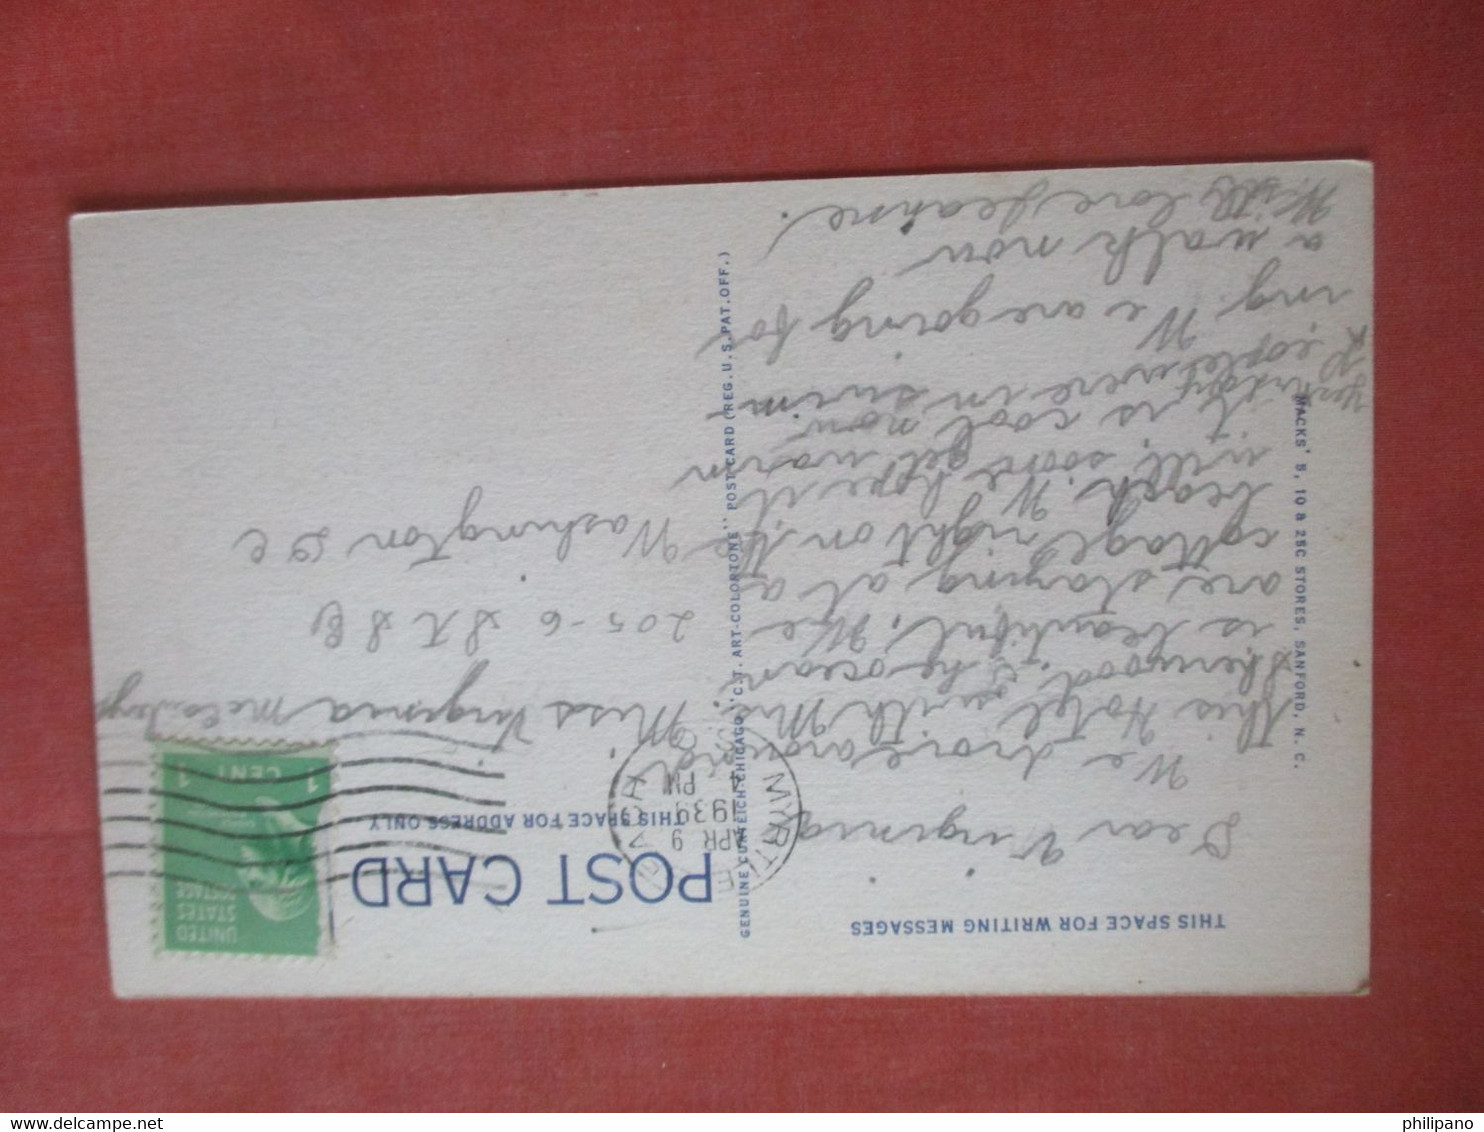 THIS SPACE FOR WRITING MESSAGES
Dear Virginia
We drove around
this Hotel with Mrs.
Sherwood, the ocean
is beautiful. We
are staying at a
cottage right on the
beach. We hope it
will soon get warm
it is cool now
yesterday
People were in swim
ing. We are going for
a walk now
With love Leahne.
MACKS' 5, 10 & 25C STORES, SANFORD, N. C.
GENUINE CURTEICH-CHICAGO "C.T. ART-COLORTONE" POST CARD (REG. U.S. PAT. OFF.)
POST CARD
THIS SPACE FOR ADDRESS ONLY
MYRTLE BEACH
APR 9
4 PM
1939
UNITED
STATES
POSTAGE
1 CENT 1
Miss Virginia
205-6 St S E
Washington D C
philipano